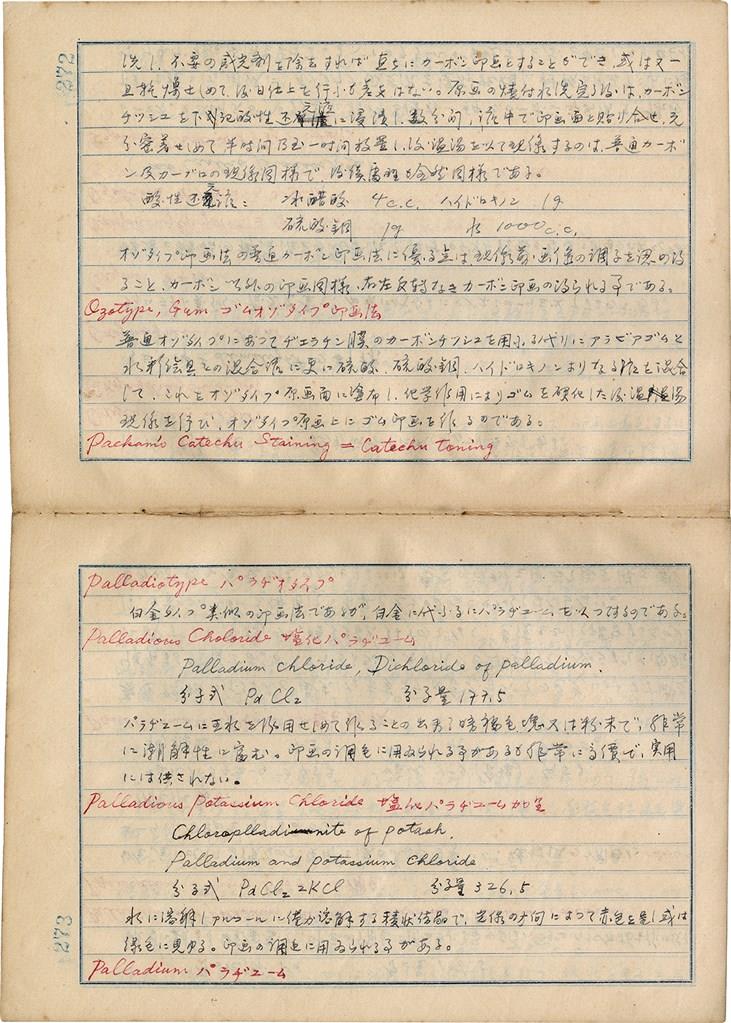 272
洗し、不要の感光剤を除去すれば直ちにカーボン印画とすることができ、或は又一
旦乾燥せしめて、後日仕上を行ふも差支はない。原画の焼付水洗完了後は、カーボン
チッシュを下記酸性還元液に浸漬し、数分間、液中で印画面と貼り合せ、充
分密着せしめて半時間乃至一時間放置し、後温湯を以て現像するのは、普通カーボ
ン及カーブロの現像同様で、後続処理も全然同様である。
酸性還元液: 氷醋酸 4c.c. ハイドロキノン 1g
硫酸銅 1g 水 1000c.c.
オゾタイプ印画法の普通カーボン印画法に優る点は現像前、画像の調子を認め得
ること、カーボン以外の印画同様、右左反転なきカーボン印画の得られる事である。
Ozotype, Gum ゴムオゾタイプ印画法
普通オゾタイプにあってヂェラチン膜のカーボンチッシュを用ふる代りにアラビアゴムと
水彩絵具との混合液に更に硫酸、硫酸銅、ハイドロキノンよりなる液を混合
して、これをオゾタイプ原画面に塗布し、化学作用によりゴムを硬化した後温湯
現像を行ひ、オゾタイプ原画上にゴム印画を作るのである。
Packam's Catechu Staining = Catechu toning
Palladiotype パラヂオタイプ
白金タイプ類似の印画法であるが、白金に代ふるにパラヂュームを以つてするのである。
Palladious Choloride 塩化パラヂューム
Palladium chloride, Dichloride of palladium.
分子式 PdCl2 分子量 177.5
パラヂュームに王水を作用せしめて作ることの出来る暗褐色塊又は粉末で、非常
に潮解性に富む。印画の調色に用ゐられる事があるも非常に高価で、実用
には供されない。
Palladious Potassium Chloride 塩化パラヂューム加里
Chloroplladinite of potash.
Palladium and potassium chloride
分子式 PdCl2 2KCl 分子量 326.5
水に溶解しアルコールに僅か溶解する稜状結晶で、光線の方向によつて赤色を呈し或は
緑色に見ゆる。印画の調色に用ゐられる事がある。
Palladium パラヂューム
273